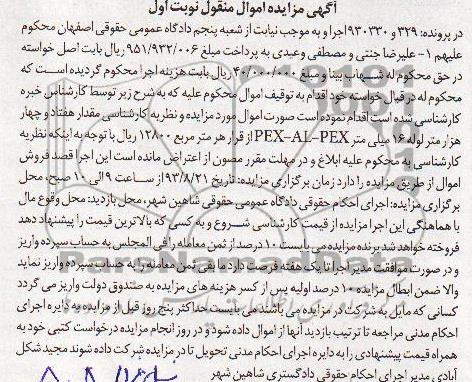 آگهی مزایده اموال منقول نوبت اول
در پرونده: ۳۲۹ و ۹۳۰۳۳۰ اجرا و به موجب نیابت از شعبه پنجم دادگاه عمومی حقوقی اصفهان محکوم
علیهم ۱- علیرضا جنتی و مصطفی وعیدی به پرداخت مبلغ ۹۵۱/۹۳۲/۰۰۶ ریال بابت اصل خواسته
در حق محکوم له شهاب بینا و مبلغ ۴۰/۰۰۰/۰۰۰ ریال بابت هزینه اجرا محکوم گردیده است که
محکوم له در قبال خواسته خود اقدام به توقیف اموال محکوم علیه که به شرح زیر توسط کارشناس خبره
کارشناسی شده است اقدام نموده است صورت اموال مورد مزایده و نظریه کارشناسی مقدار هفتاد و چهار
هزار متر لوله ۱۶ میلی متر PEX-AL-PEX از قرار هر متر مربع ۱۲۸۰۰ ریال با توجه به اینکه نظریه
کارشناسی به محکوم علیه ابلاغ و در مهلت مقرر مصون از اعتراض مانده است این اجرا قصد فروش
اموال از طریق مزایده را دارد زمان برگزاری مزایده: تاریخ ۹۳/۸/۲۱ از ساعت ۹ الی ۱۰ صبح، محل
برگزاری مزایده: اجرای احکام حقوقی دادگاه عمومی حقوقی شاهین شهر، محل بازدید: محل وقوع مال
با هماهنگی این اجرا مزایده از قیمت کارشناسی شروع و به کسی که بالاترین قیمت را پیشنهاد دهد
فروخته خواهد شد برنده مزایده می بایست ۱۰ درصد از ثمن معامله را فی المجلس به حساب سپرده واریز
و در صورت موافقت مدیر اجرا تا یک هفته فرصت دارد مابقی ثمن معامله را به حساب سپرده واریز نماید
والا ضمن ابطال مزایده ۱۰ درصد اولیه پس از کسر هزینه های مزایده به صندوق دولت واریز می گردد
کسانی که مایل به شرکت در مزایده می باشند می بایست حداکثر پنج روز قبل از مزایده به دایره اجرای
احکام مدنی مراجعه تا ترتیب بازدید آنها از اموال داده شود و در روز انجام مزایده درخواست کتبی خود به
همراه قیمت پیشنهادی را به دایره اجرای احکام مدنی تحویل تا در مزایده شرکت داده شوند مجید شکل
آبادی مدیر اجرای احکام حقوقی دادگستری شاهین شهر
ParsNamadData